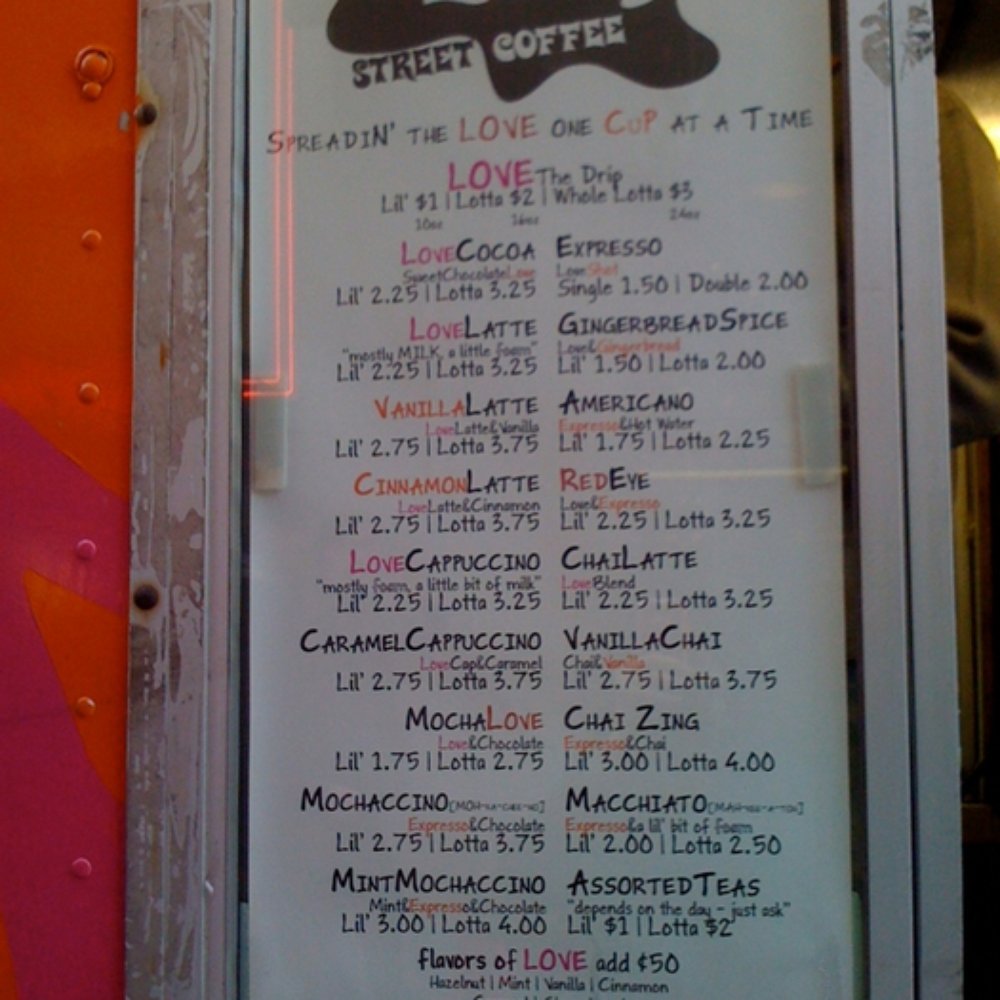 STREET COFFEE
SPREADIN' THE LOVE ONE CUP AT A TIME
LOVE The Drip
Lil' $1 | Lotta $2 | Whole Lotta $3
10oz 16oz 24oz
LOVECOCOA
SweetChocolateLove
Lil' 2.25 | Lotta 3.25
EXPRESSO
LoveShot
Single 1.50 | Double 2.00
LOVELATTE
"mostly MILK, a little foam"
Lil' 2.25 | Lotta 3.25
GINGERBREADSPICE
Love&Gingerbread
Lil' 1.50 | Lotta 2.00
VANILLALATTE
LoveLatte&Vanilla
Lil' 2.75 | Lotta 3.75
AMERICANO
Expresso&Hot Water
Lil' 1.75 | Lotta 2.25
CINNAMONLATTE
LoveLatte&Cinnamon
Lil' 2.75 | Lotta 3.75
REDEYE
Love&Expresso
Lil' 2.25 | Lotta 3.25
LOVECAPPUCCINO
"mostly foam, a little bit of milk"
Lil' 2.25 | Lotta 3.25
CHAILATTE
LoveBlend
Lil' 2.25 | Lotta 3.25
CARAMELCAPPUCCINO
LoveCap&Caramel
Lil' 2.75 | Lotta 3.75
VANILLACHAI
Chai&Vanilla
Lil' 2.75 | Lotta 3.75
MOCHALOVE
Love&Chocolate
Lil' 1.75 | Lotta 2.75
CHAI ZING
Expresso&Chai
Lil' 3.00 | Lotta 4.00
MOCHACCINO
Expresso&Chocolate
Lil' 2.75 | Lotta 3.75
MACCHIATO
Expresso&a lil' bit of foam
Lil' 2.00 | Lotta 2.50
MINTMOCHACCINO
Mint&Expresso&Chocolate
Lil' 3.00 | Lotta 4.00
ASSORTEDTEAS
"depends on the day - just ask"
Lil' $1 | Lotta $2
flavors of LOVE add ¢50
Hazelnut | Mint | Vanilla | Cinnamon